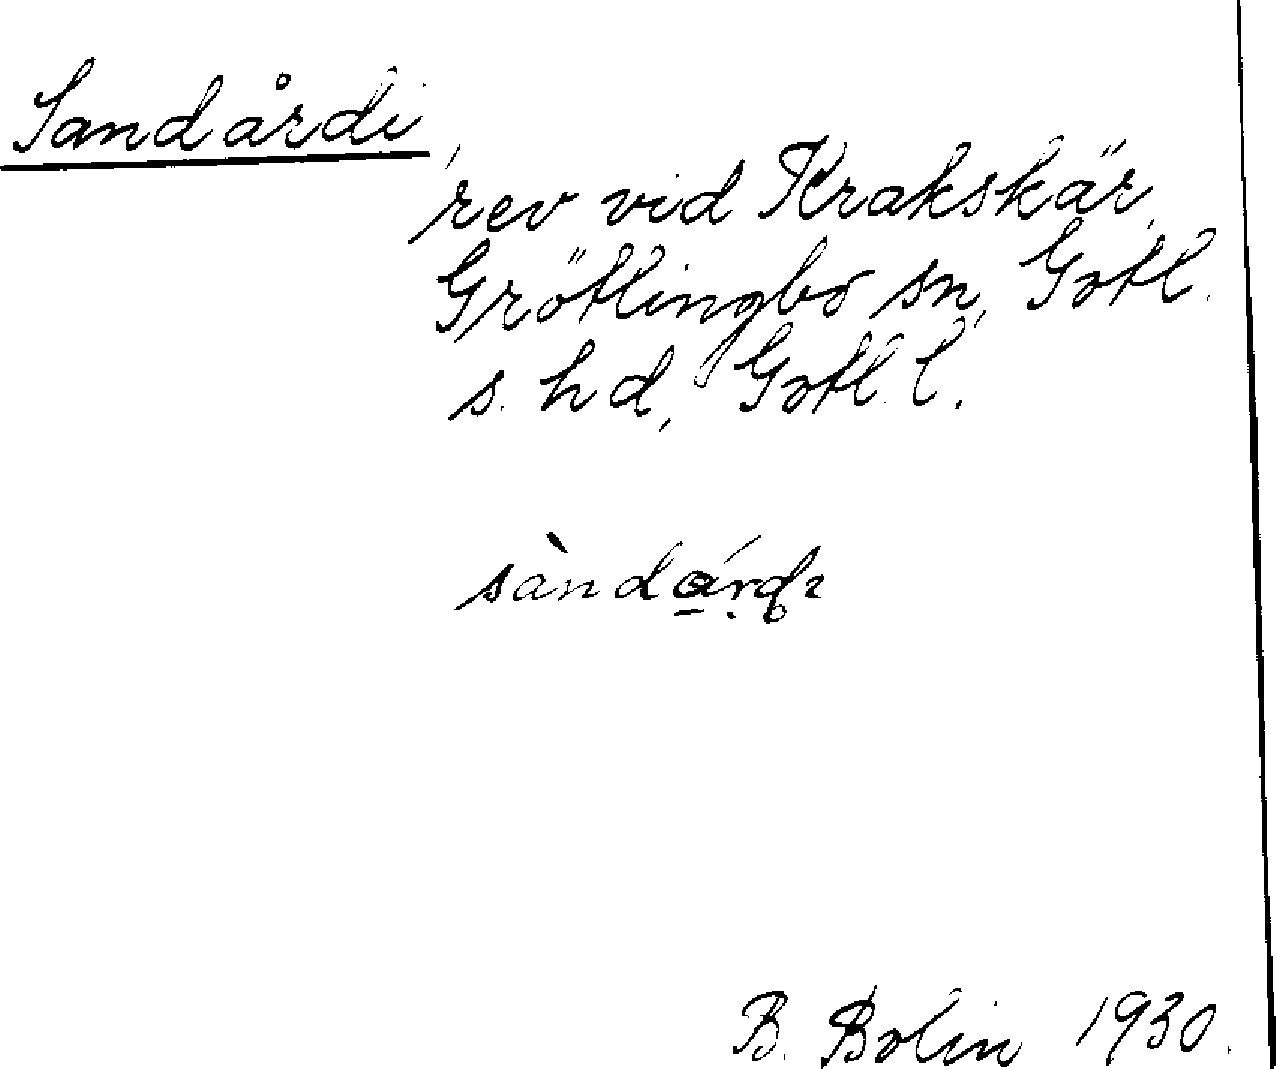 Sandårdi,
rev vid Krakskär,
Grötlingbo sn, Gotl.
s. hd, Gotl. l.
sàndárdı
B. Bolin 1930.